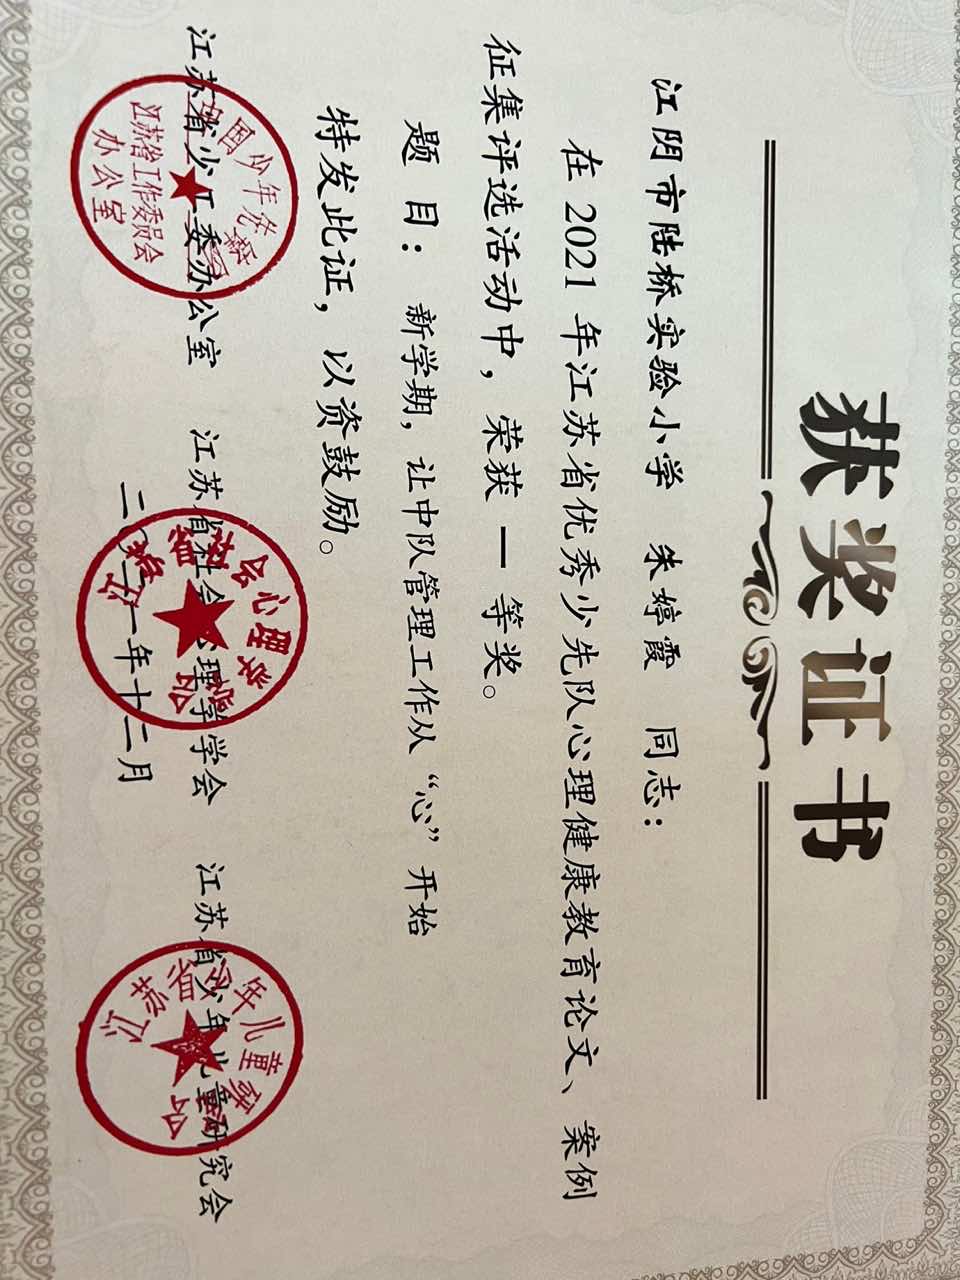 获奖证书
江阴市陆桥实验小学 朱婷霞 同志：
在 2021 年江苏省优秀少先队心理健康教育论文、案例
征集评选活动中，荣获 一 等奖。
题 目： 新学期，让中队管理工作从“心”开始
特发此证，以资鼓励。
江苏省少工委办公室 江苏省社会心理学学会 江苏省少年儿童研究会
二〇二一年十二月
江苏省工作委员会
办公室